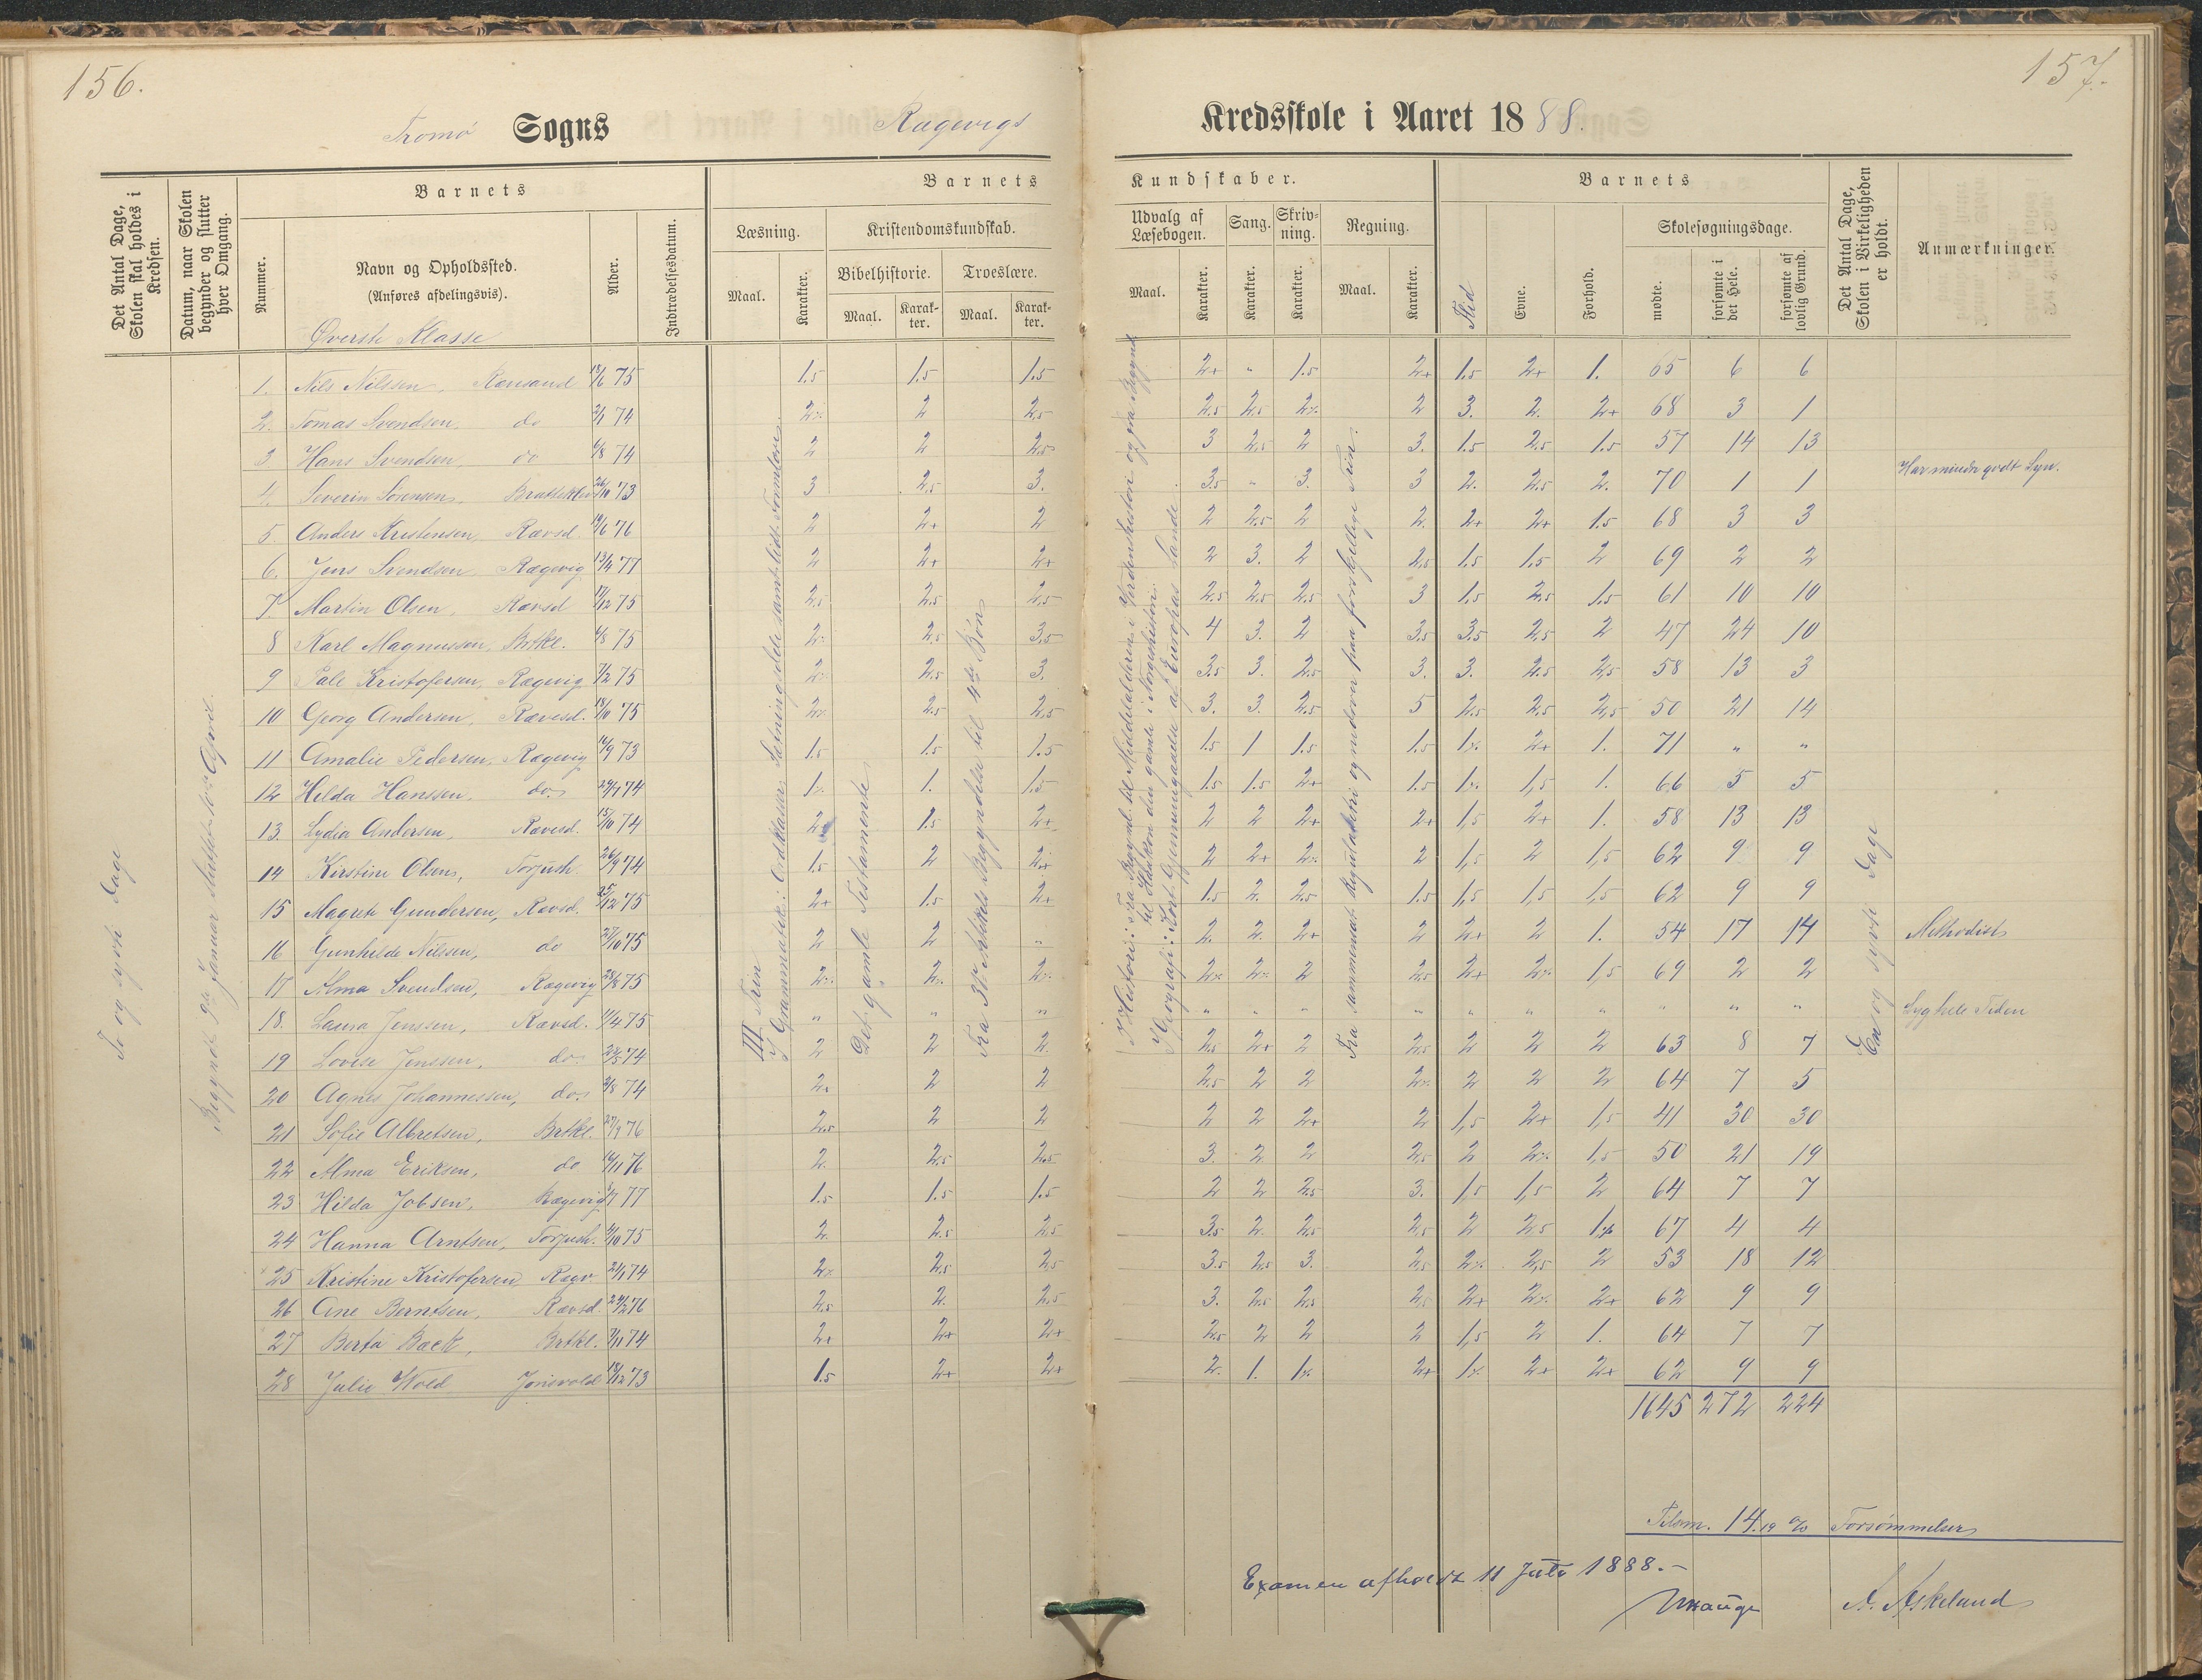 156.
157.
Tromø Sogns Rægevigs Kredsskole i Aaret 1888.
Det Antal Dage, Skolen skal holdes i Kredsen.
Datum, naar Skolen begynder og slutter hver Omgang.
Barnets
Nummer.
Navn og Opholdssted.
(Anføres afdelingsvis).
Alder.
Indtrædelsesdatum.
Barnets Kundskaber.
Læsning.
Maal.
Karakter.
Kristendomskundskab.
Bibelhistorie.
Maal.
Karakter.
Troeslære.
Maal.
Karakter.
Udvalg af Læsebogen.
Maal.
Karakter.
Sang.
Karakter.
Skrivning.
Karakter.
Regning.
Maal.
Karakter.
Barnets
Flid
Evne.
Forhold.
Skolesøgningsdage.
mødte.
forsømte i det Hele.
forsømte af lovlig Grund.
Det Antal Dage, Skolen i Virkeligheden er holdt.
Anmærkninger.
To og sytti Dage
Begyndt 9de Januar sluttet April
III Trin
Det gamle Testamente
Fra 3die Artikels Begyndelse til 4de Bøn
En og sytti Dage
Øverste Klasse
1. Nils Nilssen, Rævesand 18/6 75 1.5 1.5 1.5 2+ " 1.5 2+ 1.5 2+ 1. 65 6 6
2. Tomas Svendsen, do 2/1 74 2% 2 2.5 2.5 2.5 2% 2 3. 2. 2+ 68 3 1
3 Hans Svendsen, do 6/8 74 2 2 2.5 3 2.5 2 3. 1.5 2.5 1.5 57 14 13
4. Severin Sörensen, Bratteklev 26/10 73 3 2.5 3. 3.5 " 3. 3 2. 2.5 2. 70 1 1 Har mindre godt Syn.
5. Anders Kristensen, Rævsd. 19/6 76 2 2+ 2 2 2.5 2 2. 2+ 2+ 1.5 68 3 3
6. Jens Svendsen Rægevig 13/4 77 2 2+ 2+ 2 3. 2 2.5 1.5 1.5 2 69 2 2
7. Martin Olsen, Rævsd 17/12 75 2.5 2.5 2.5 2.5 2.5 2.5 3 1.5 2.5 1.5 61 10 10
8 Karl Magnussen, Brtkl. 4/8 75 2% 2.5 3.5 4 3. 2 3.5 3.5 2.5 2 47 24 10
9 Pale Kristofersen, Rægevig 7/2 75 2% 2.5 3. 3.5 3. 2.5 3. 3. 2.5 2.5 58 13 3
10 Georg Andersen, Rævesd. 18/10 75 2% 2.5 2.5 3. 3. 2.5 5 2.5 2.5 2.5 50 21 14
11 Amalie Pedersen, Rægevig 16/9 73 1.5 1.5 1.5 1.5 1 1.5 1.5 1% 2+ 1. 71 " "
12 Hilda Hanssen, do. 24/7 74 1% 1. 1.5 1.5 1.5 2+ 1.5 1% 1,5 1. 66 5 5
13. Lydia Andersen, Rævesd. 15/10 74 2 1.5 2+ 2 2 2+ 2+ 1,5 2+ 1. 58 13 13
14 Kirstine Olsen, Torjush. 26/9 74 1.5 2 2+ 2 2+ 2% 2 1,5 2 1,5 62 9 9
15 Magrete Gundersen, Rævsd. 25/12 75 2+ 1.5 2+ 1.5 2. 2.5 1.5 1,5 1,5 1,5 62 9 9
16 Gunhilde Nilssen, do 27/10 75 2 2 " 2. 2. 2+ 2 2+ 2 1. 54 17 14 Methodist
17 Alma Svendsen, Rægevig 28/8 75 2% 2% 2% 2% 2% 2 2.5 2+ 2% 1,5 69 2 2
18. Laura Jenssen, Rævsd. 11/4 75 " " " " " " " " " " " " " Syg hele Tiden
19 Lovise Jenssen, do. 22/5 74 2 2 2. 2.5 2+ 2 2.5 2 2 2 63 8 7
20 Agnes Johannessen, do. 2/8 74 2% 2 2 2.5 2 2 2% 2 2 2 64 7 5
21 Sofie Albretsen, Brtkl. 27/9 76 2.5 2 2 2 2 2+ 2 1,5 2+ 1,5 41 30 30
22 Alma Eriksen, do 16/11 76 2. 2.5 2.5 3. 2 2 2.5 2 2% 1,5 50 21 19
23 Hilda Jobsen, Rægevig 5/7 77 1.5 1.5 1.5 2 2 2.5 3. 1,5 1,5 2 64 7 7
24 Hanna Arntsen, Torjush. 4/10 75 2. 2.5 2.5 3.5 2. 2.5 2.5 2 2.5 1% 67 4 4
25 Kristine Kristofersen Rægv. 21/1 74 2% 2.5 2.5 3.5 2.5 3. 2.5 2% 2.5 2 53 18 12
26 Ane Berntsen, Rævsd. 24/2 76 2.5 2. 2.5 3. 2.5 2.5 2.5 2+ 2% 2+ 62 9 9
27 Berta Back, Brtkl. 7/11 74 2+ 2+ 2+ 2.5 2 2 2 1,5 2 1. 64 7 7
28 Julie Wold Jonsvold 18/12 73 1.5 2+ 2+ 2. 1. 1% 2+ 1% 2+ 2+ 62 9 9
1645 272 224
Tilsm. 14.19 % Forsømmelser
Examen afholdt 11 Juli 1888.-
A. Askeland